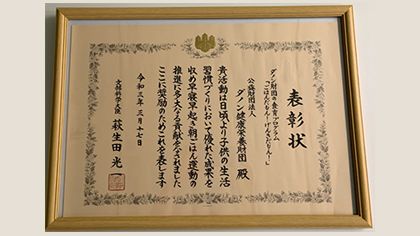 表彰状
ダノン財団の食育プログラム
「ごはんだもん！げんきだもん！」
公益財団法人
ダノン健康栄養財団 殿
貴活動は日頃より子供の生活
習慣づくりにおいて優れた成果を
収め早寝早起き朝ごはん運動の
推進に多大なる貢献をされました
ここに奨励のためこれを表します
令和三年三月十七日
文部科学大臣 萩生田光一